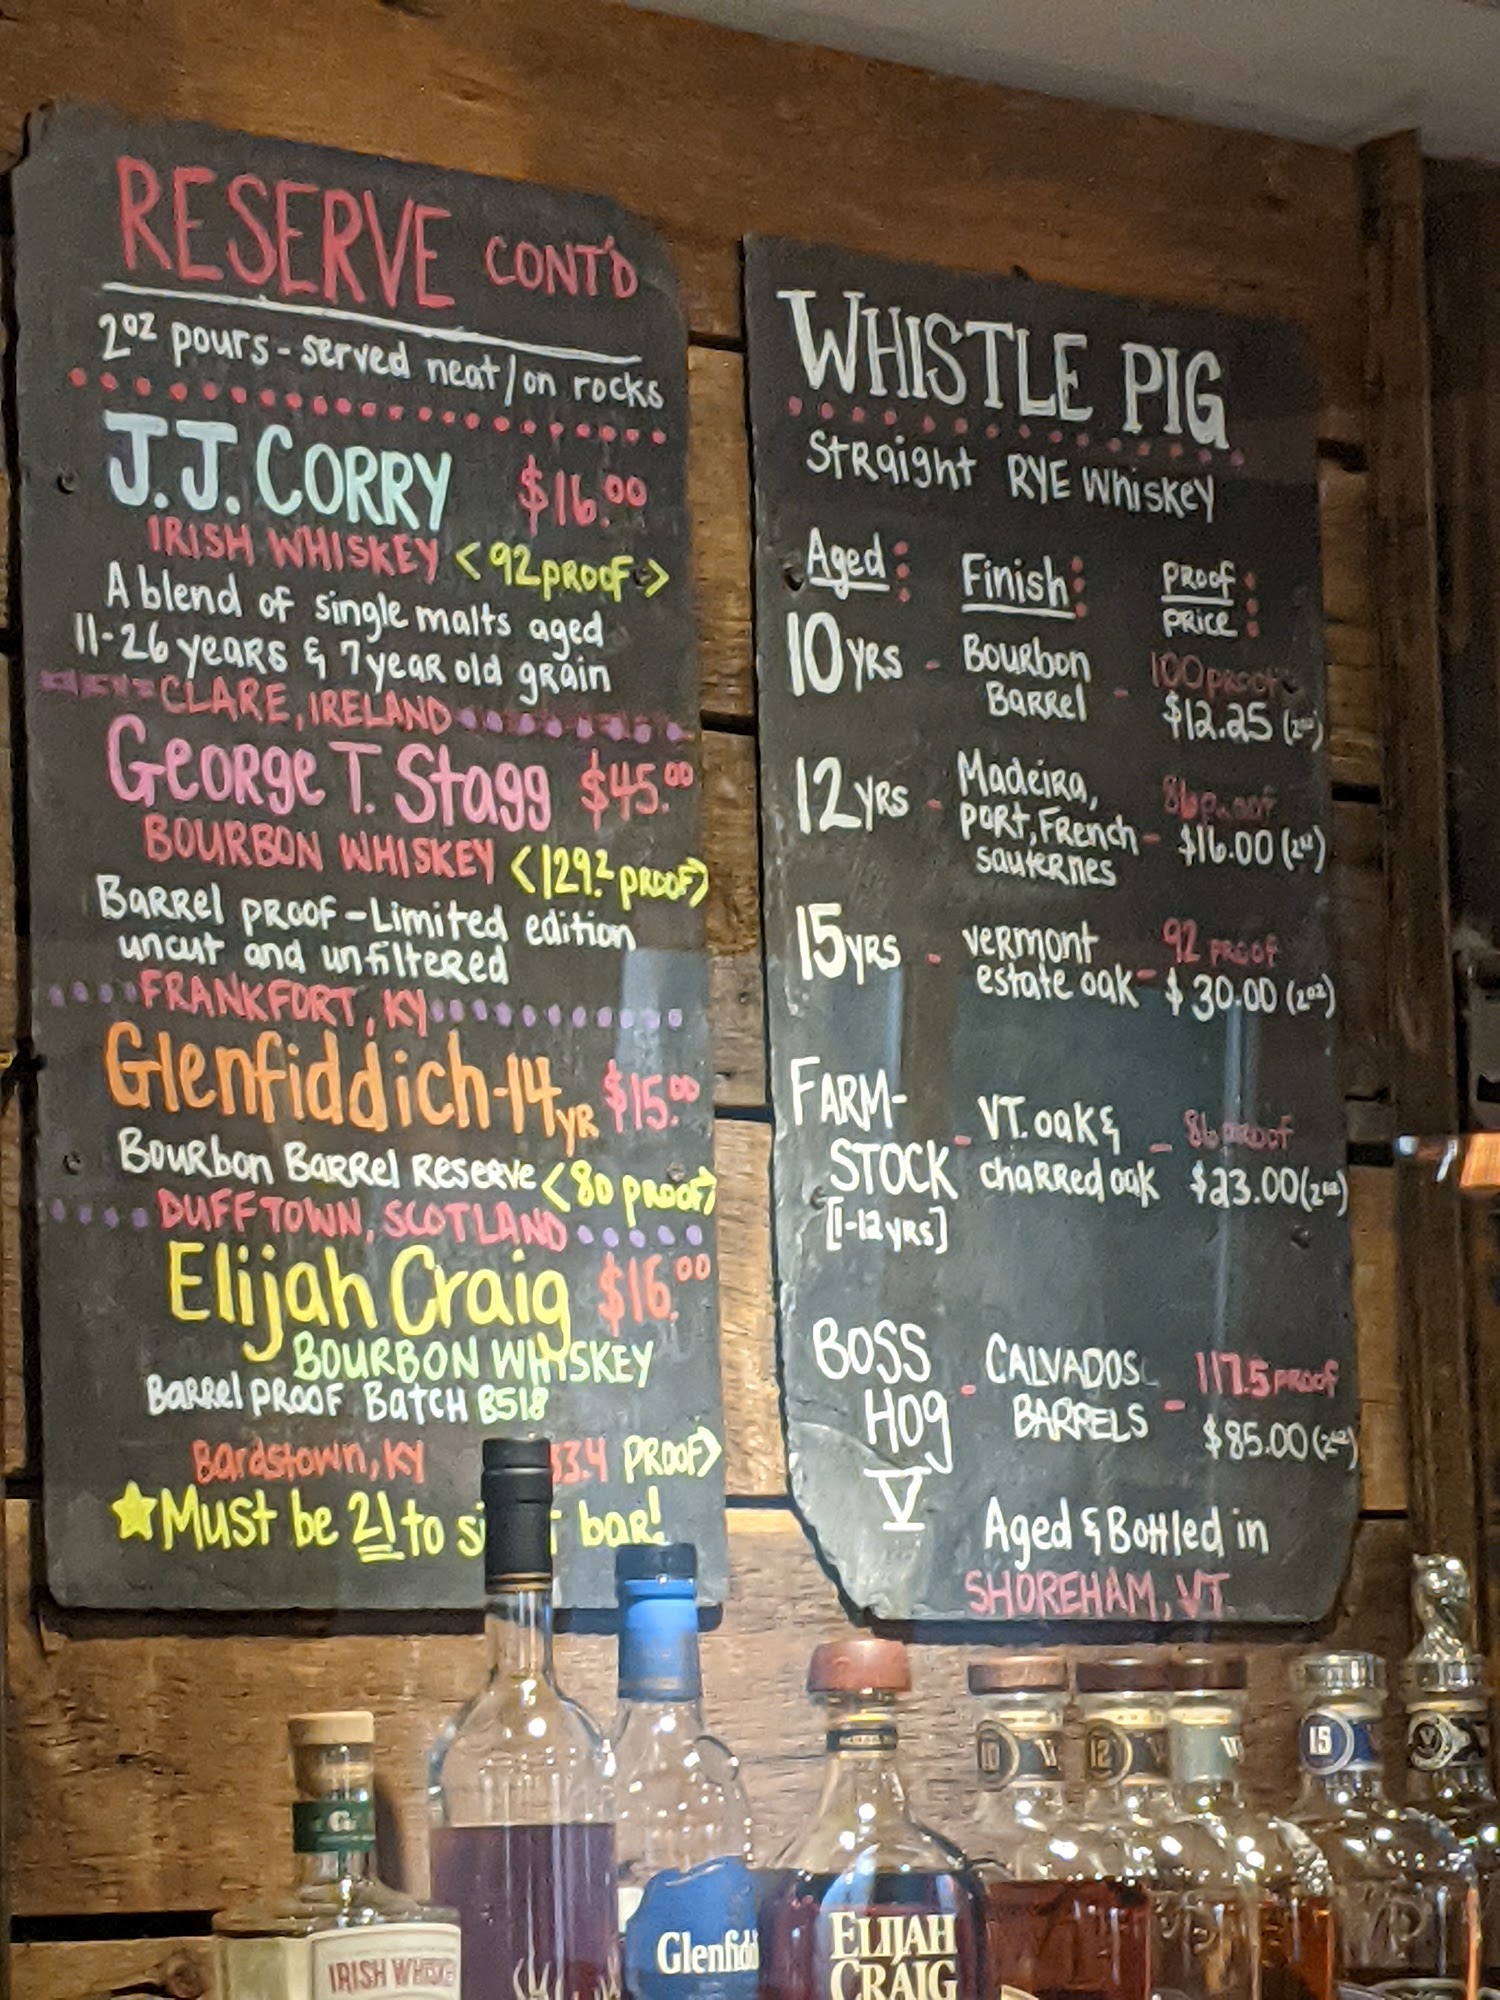 RESERVE CONT'D
2oz pours - served neat/on rocks
J.J. CORRY $16.00
IRISH WHISKEY <92 PROOF>
A blend of single malts aged
11-26 years & 7 year old grain
CLARE, IRELAND
George T. Stagg $45.00
BOURBON WHISKEY <129.2 PROOF>
Barrel proof - Limited edition
uncut and unfiltered
FRANKFORT, KY
Glenfiddich-14yr $15.00
Bourbon Barrel Reserve <80 proof>
DUFFTOWN, SCOTLAND
Elijah Craig $16.00
BOURBON WHISKEY
Barrel PROOF Batch B518
Bardstown, KY 33.4 PROOF>
Must be 21 to bar!
WHISTLE PIG
Straight RYE Whiskey
Aged: Finish: PROOF:
PRICE:
10 YRS - Bourbon Barrel - 100 proof $12.25 (2oz)
12 YRS - Madeira, port, French sauternes - 86 proof $16.00 (2oz)
15 YRS - vermont estate oak - 92 proof $30.00 (2oz)
FARM-STOCK [1-12 yrs] - VT. oak & charred oak - 86 proof $23.00 (2oz)
BOSS HOG V - CALVADOS BARRELS - 117.5 proof $85.00 (2oz)
Aged & Bottled in
SHOREHAM, VT
10
12
15
V
IRISH WHISKE
Glenfiddi
ELIJAH
CRAIG